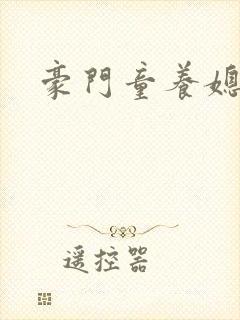 豪門童養媳
遥控器